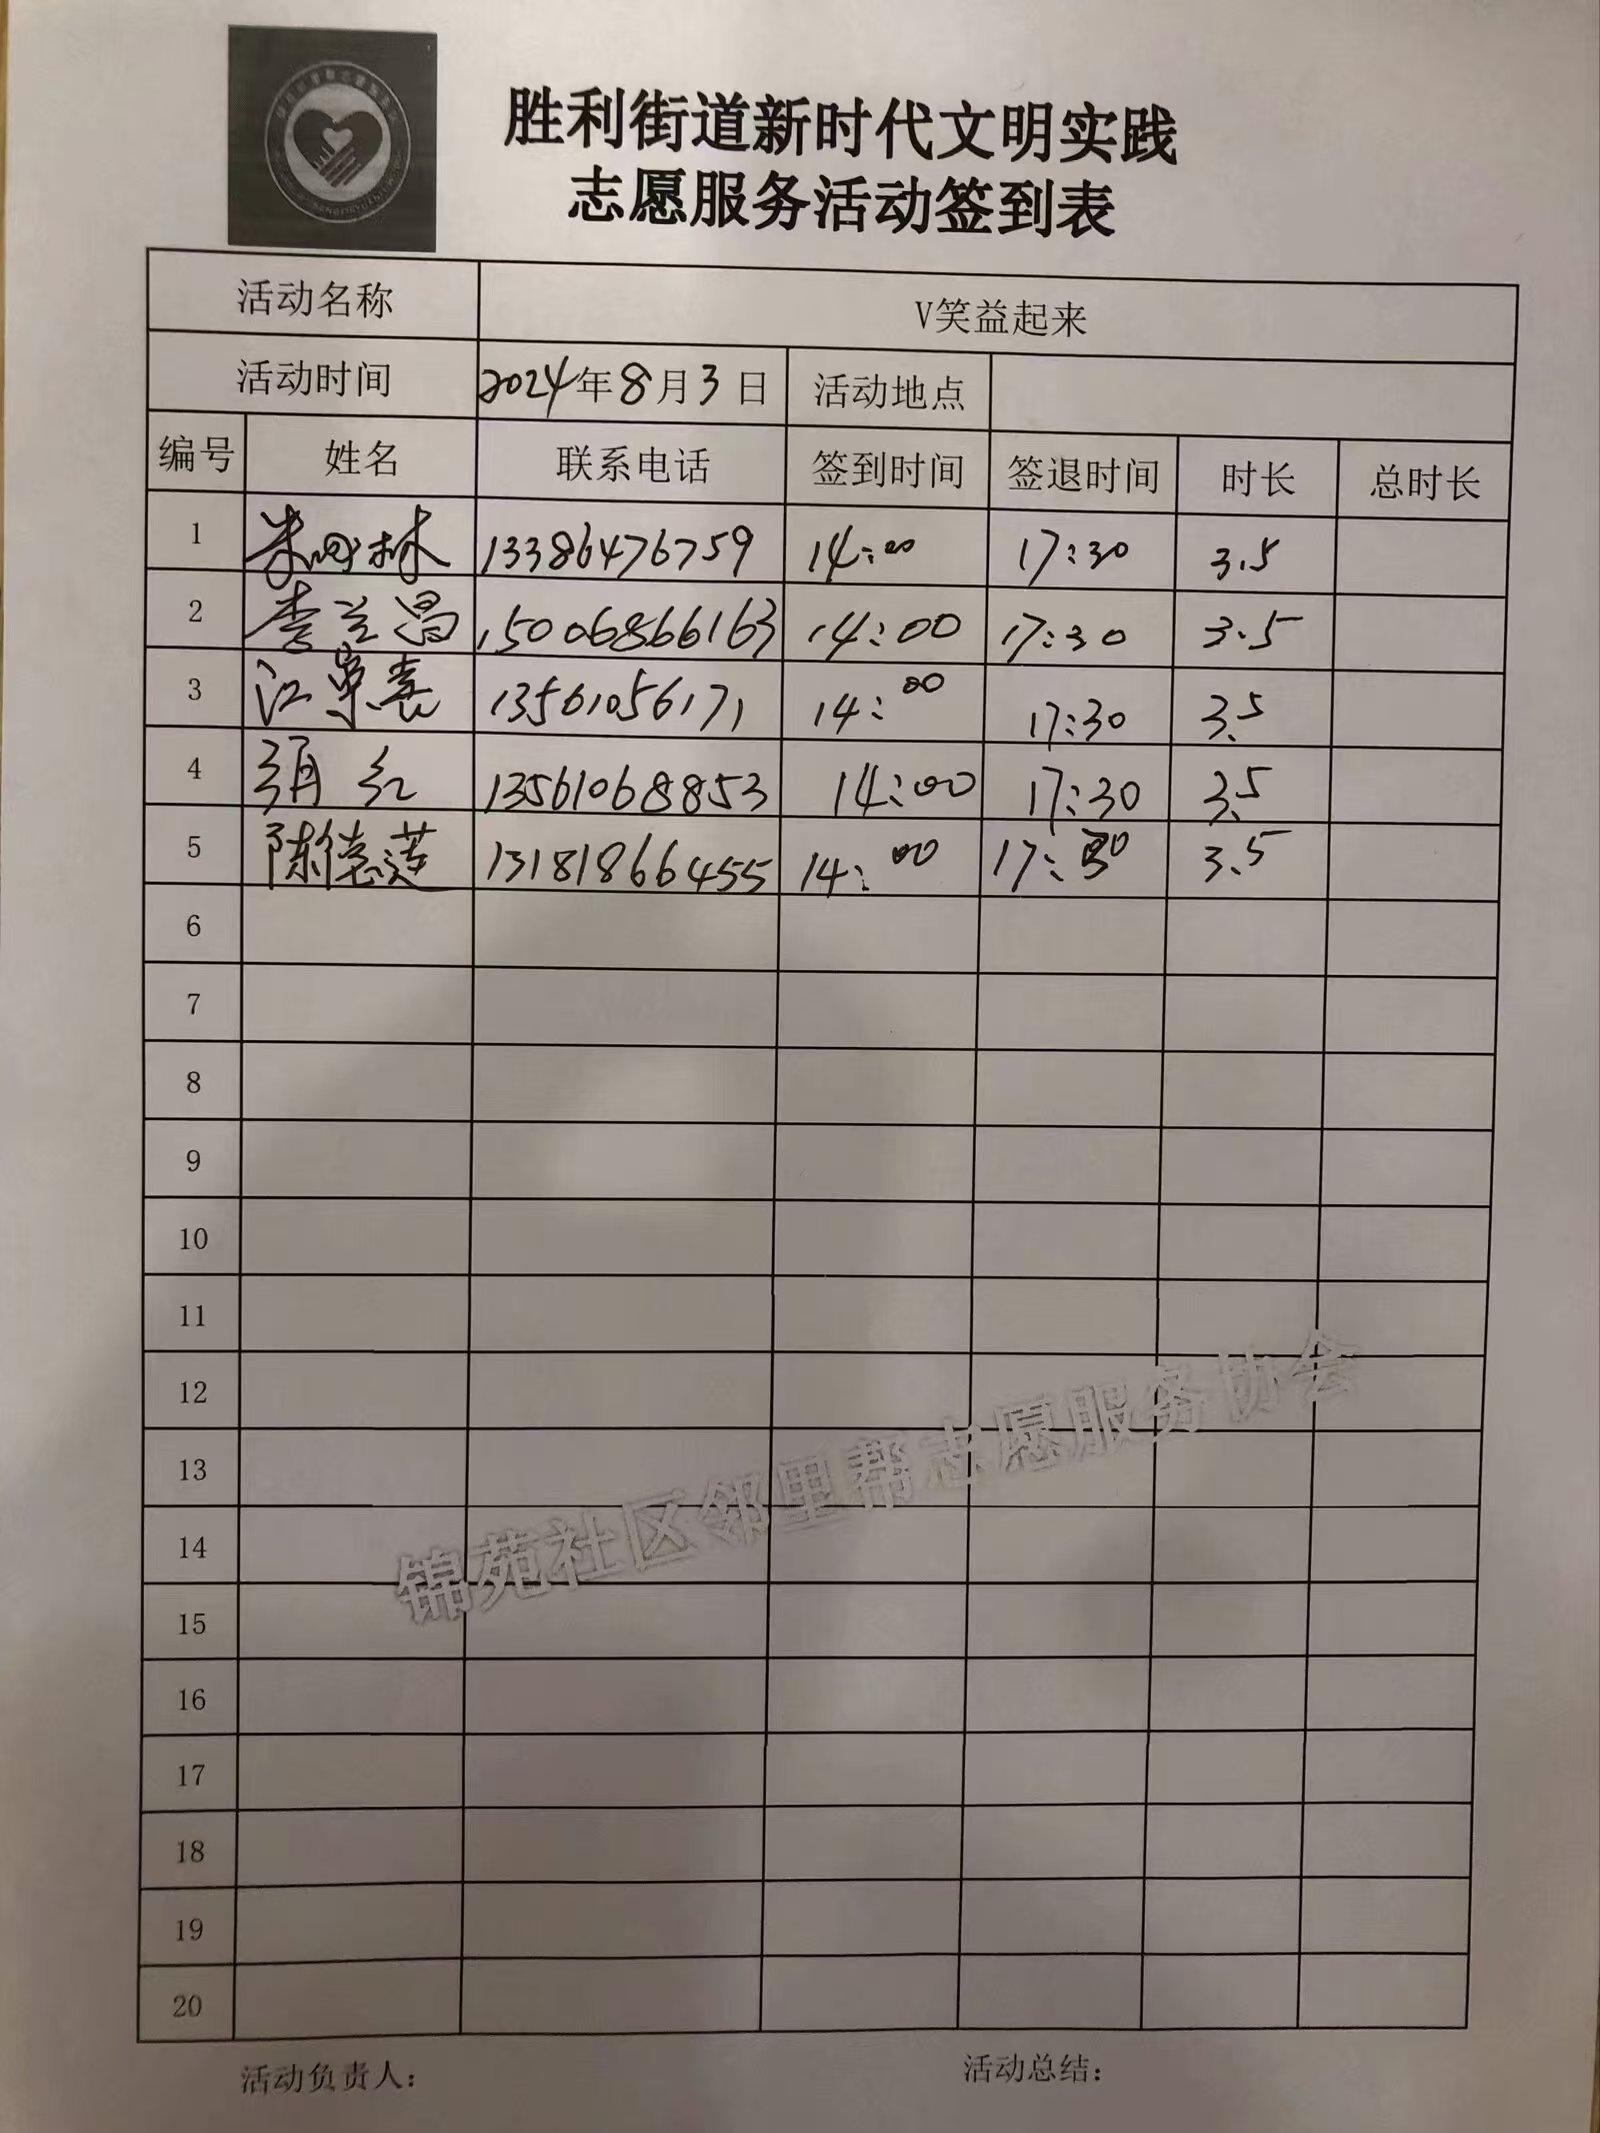 胜利街道新时代文明实践
志愿服务活动签到表
活动名称 V笑益起来
活动时间 2024年8月3日 活动地点
编号 姓名 联系电话 签到时间 签退时间 时长 总时长
1 林 13386476759 14:00 17:30 3.5
2 李兰昌 15006866163 14:00 17:30 3.5
3 江 13561056171 14:00 17:30 3.5
4 红 13561068853 14:00 17:30 3.5
5 陈德莲 13181866455 14:00 17:30 3.5
6
7
8
9
10
11
12
13
14
15
16
17
18
19
20
锦苑社区邻里帮志愿服务协会
活动负责人: 活动总结: